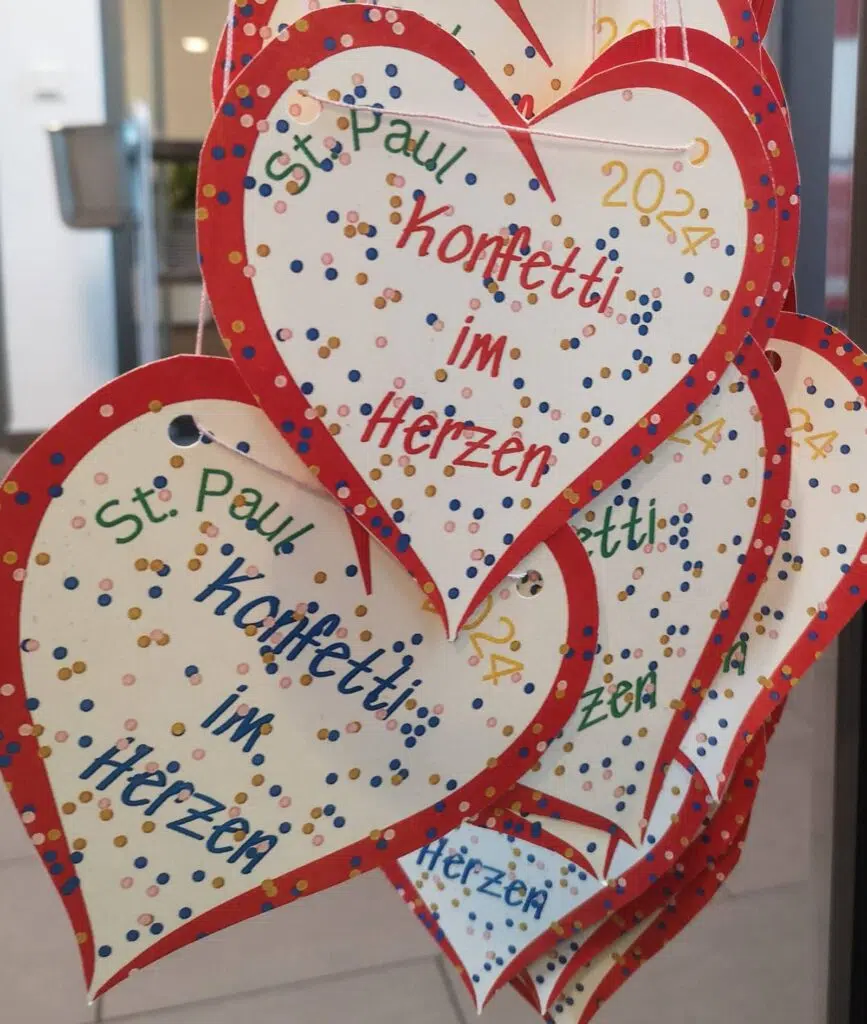 2024
St. Paul
2024
Konfetti
im
Herzen
St. Paul
2024
Konfetti
im
Herzen
24
etti
zen
24
n
Herzen